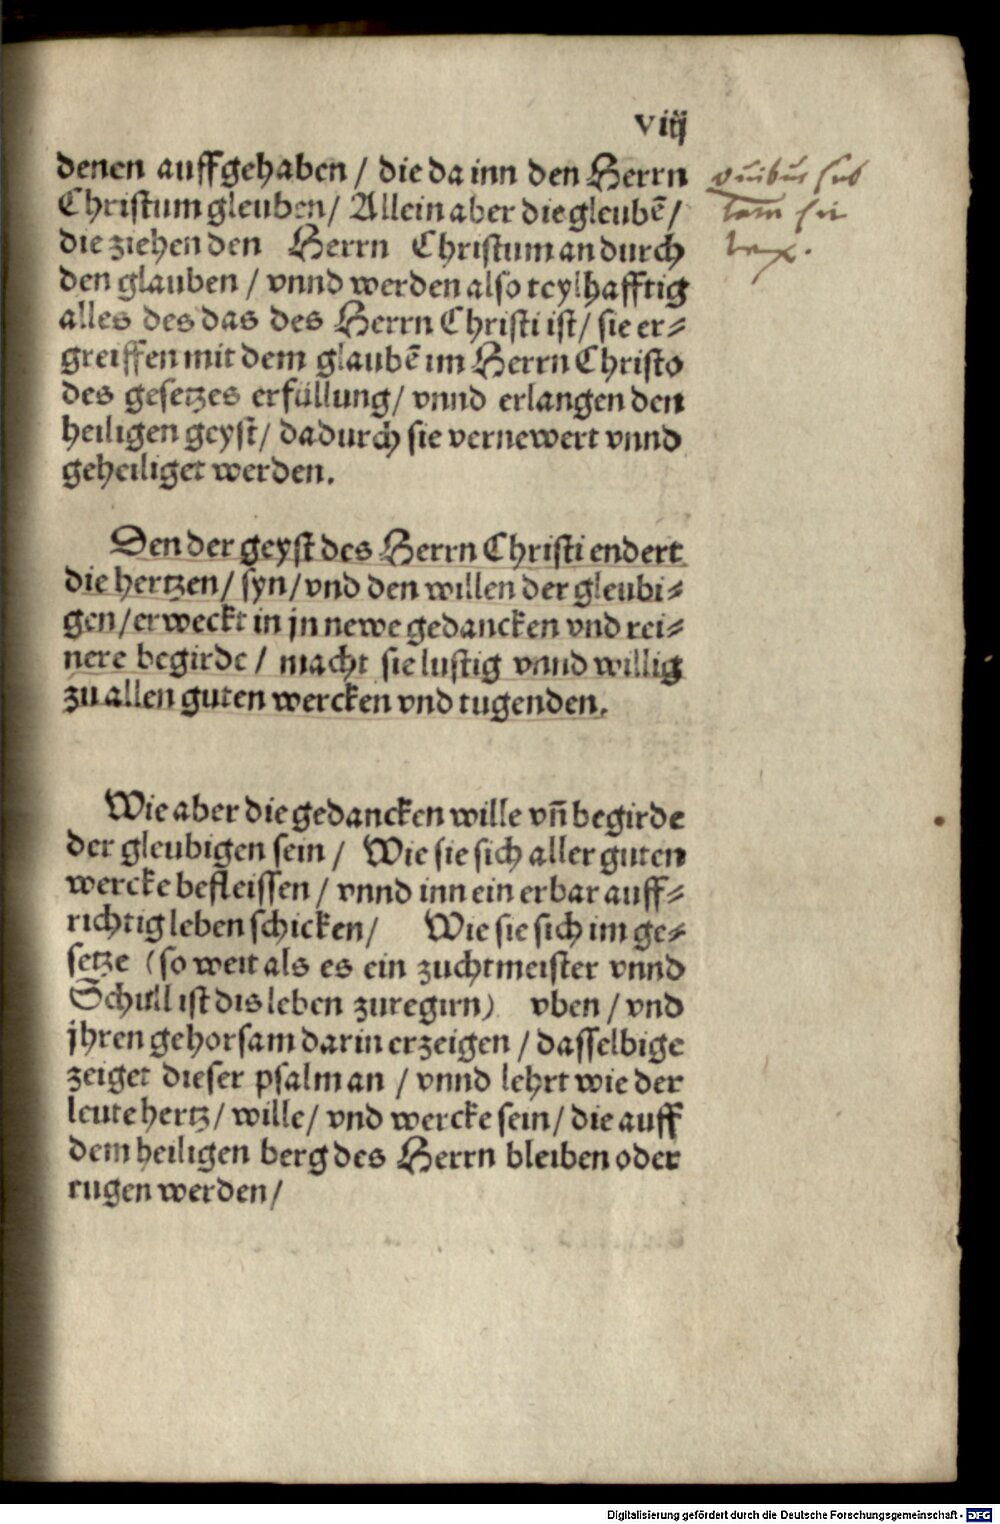 viij
denen auffgehaben / die da inn den Herrn
Christum gleuben / Allein aber die gleubē /
die ziehen den Herrn Christum an durch
den glauben / vnnd werden also teylhafftig
alles des das des Herrn Christi ist / sie er⸗
greiffen mit dem glaubē im Herrn Christo
des gesetzes erfüllung / vnnd erlangen den
heiligen geyst / dadurch sie vernewert vnnd
geheiliget werden.
Den der geyst des Herrn Christi endert
die hertzen / syn / vnd den willen der gleubi⸗
gen / erweckt in jn newe gedancken vnd rei⸗
nere begirde / macht sie lustig vnnd willig
zu allen guten wercken vnd tugenden.
Wie aber die gedancken wille vn̄ begirde
der gleubigen sein / Wie sie sich aller guten
wercke befleissen / vnnd inn ein erbar auff⸗
richtig leben schicken / Wie sie sich im ge⸗
setze (so weit als es ein zuchtmeister vnnd
Schull ist dis leben zuregirn) vben / vnd
jhren gehorsam darin erzeigen / dasselbige
zeiget dieser psalm an / vnnd lehrt wie der
leute hertz / wille / vnd wercke sein / die auff
dem heiligen berg des Herrn bleiben oder
rugen werden /
quibus sub
sit
lex.
Digitalisierung gefördert durch die Deutsche Forschungsgemeinschaft - DFG